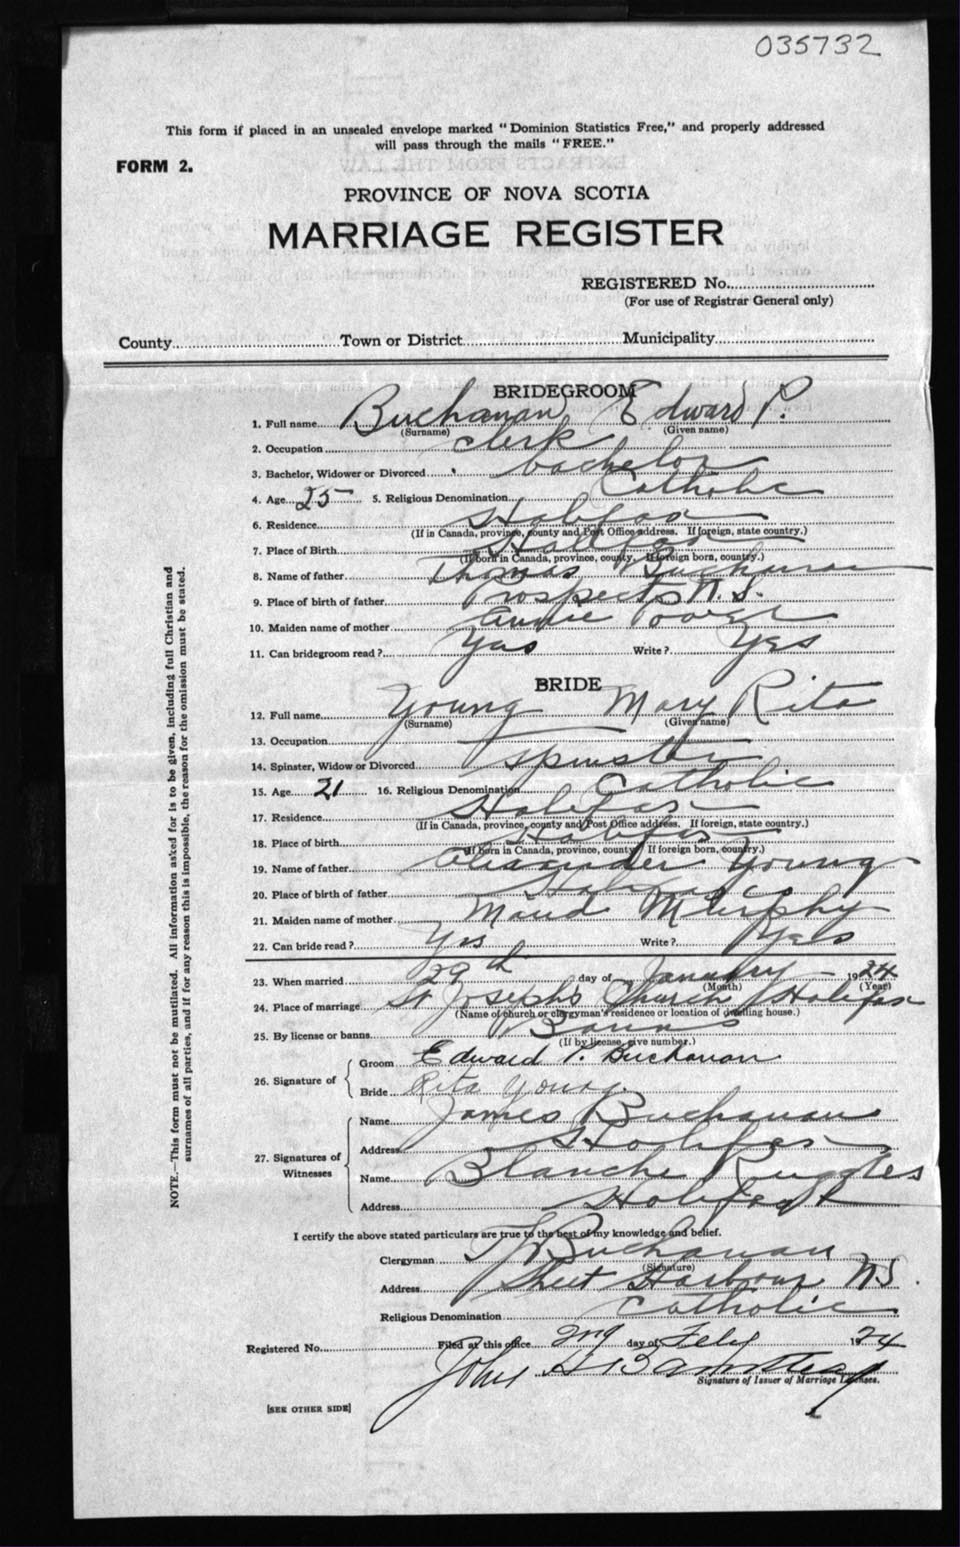 035732
This form if placed in an unsealed envelope marked "Dominion Statistics Free," and properly addressed
will pass through the mails "FREE."
FORM 2.
PROVINCE OF NOVA SCOTIA
MARRIAGE REGISTER
REGISTERED No.
(For use of Registrar General only)
County Town or District Municipality
BRIDEGROOM
1. Full name Buchanan Edward P.
(Surname) (Given name)
2. Occupation clerk
3. Bachelor, Widower or Divorced bachelor
4. Age 25 5. Religious Denomination Catholic
6. Residence Halifax
(If in Canada, province, county and Post Office address. If foreign, state country.)
7. Place of Birth Halifax
(If born in Canada, province, county. If foreign born, country.)
8. Name of father Thomas Buchanan
9. Place of birth of father Prospects N.S.
10. Maiden name of mother Annie Power
11. Can bridegroom read? Yas Write? Yes
BRIDE
12. Full name Young Mary Rita
(Surname) (Given name)
13. Occupation
14. Spinster, Widow or Divorced Spinster
15. Age 21 16. Religious Denomination Catholic
17. Residence Halifax
(If in Canada, province, county and Post Office address. If foreign, state country.)
18. Place of birth Halifax
(If born in Canada, province, county. If foreign born, country.)
19. Name of father Alexander Young
20. Place of birth of father Halifax
21. Maiden name of mother Maud Murphy
22. Can bride read? Yes Write? Yes
23. When married 29th day of January 1924
(Month) (Year)
24. Place of marriage St Josephs Church Halifax
(Name of church or clergyman's residence or location of dwelling house.)
25. By license or banns Banns
(If by license, give number.)
26. Signature of Groom Edward P. Buchanan
Bride Rita Young.
27. Signatures of Witnesses Name James Buchanan
Address Halifax
Name Blanche Ruggles
Address Halifax
I certify the above stated particulars are true to the best of my knowledge and belief.
Clergyman Buchanan
(Signature)
Address Sheet Harbour N S.
Religious Denomination Catholic
Registered No. Filed at this office 2nd day of Feby 1924
John
Signature of Issuer of Marriage Licenses.
[SEE OTHER SIDE]
NOTE.—This form must not be mutilated. All information asked for is to be given, including full Christian and
surnames of all parties, and if for any reason this is impossible, the reason for the omission must be stated.